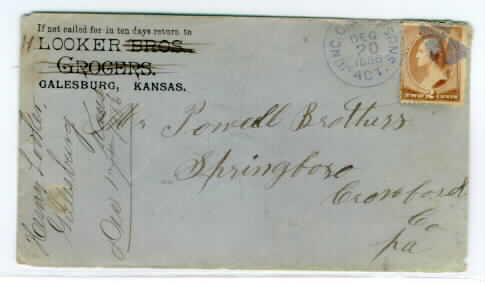 If not called for in ten days return to
LOOKER BROS.
GROCERS.
GALESBURG, KANSAS.
DEC
20
Mr Powell Brothers
Springboro
Crawford
Co
Pa
Henry Looker,
Galesburg
Kans
Dec
TWO CENTS